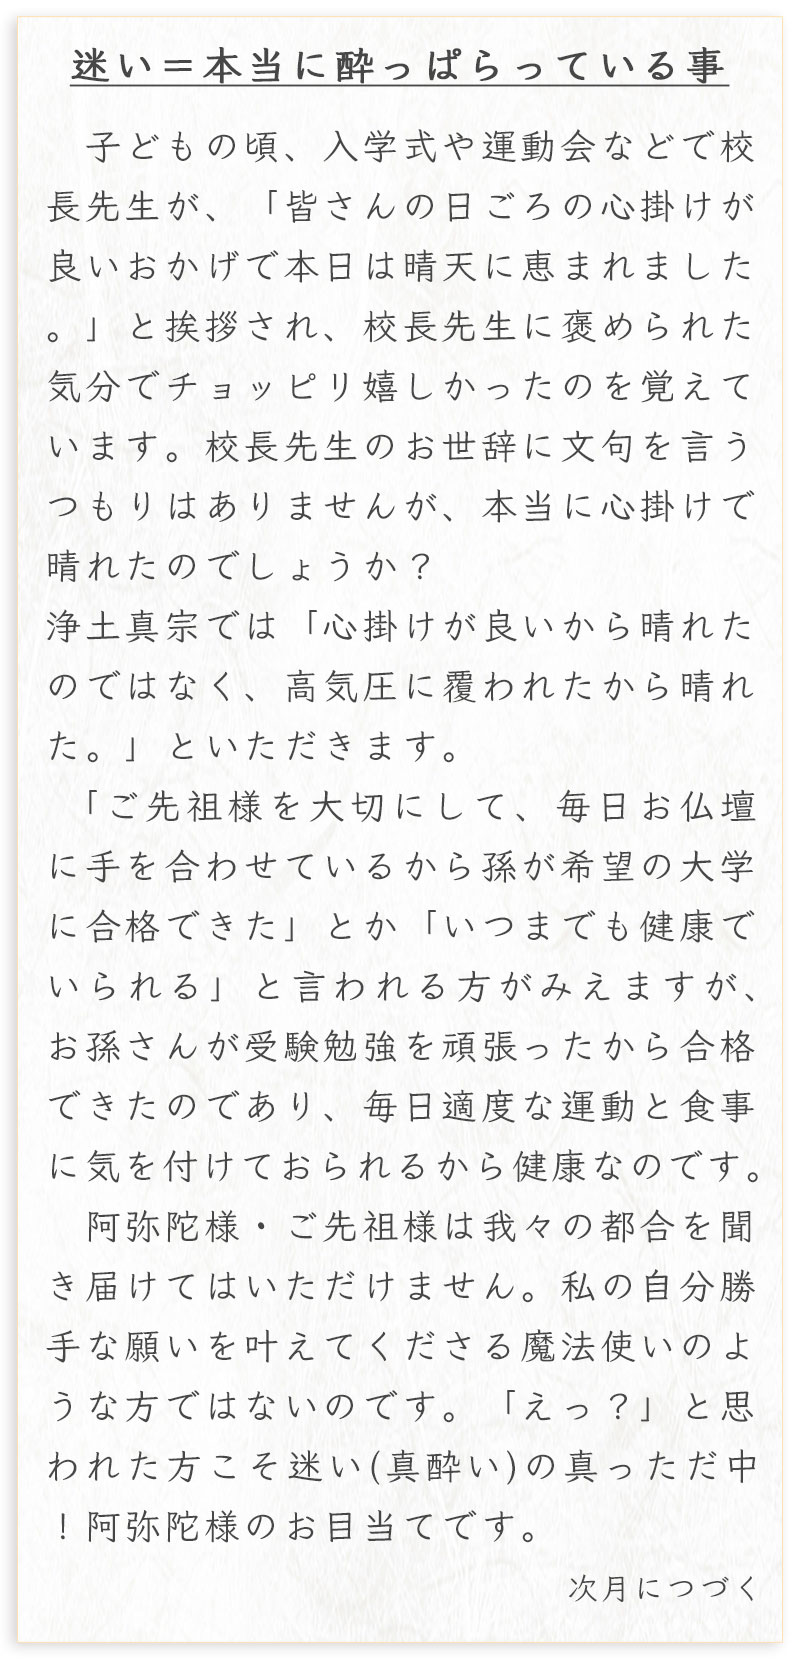 迷い＝本当に酔っぱらっている事
　子どもの頃、入学式や運動会などで校
長先生が、「皆さんの日ごろの心掛けが
良いおかげで本日は晴天に恵まれました
。」と挨拶され、校長先生に褒められた
気分でチョッピリ嬉しかったのを覚えて
います。校長先生のお世辞に文句を言う
つもりはありませんが、本当に心掛けで
晴れたのでしょうか？
浄土真宗では「心掛けが良いから晴れた
のではなく、高気圧に覆われたから晴れ
た。」といただきます。
　「ご先祖様を大切にして、毎日お仏壇
に手を合わせているから孫が希望の大学
に合格できた」とか「いつまでも健康で
いられる」と言われる方がみえますが、
お孫さんが受験勉強を頑張ったから合格
できたのであり、毎日適度な運動と食事
に気を付けておられるから健康なのです。
　阿弥陀様・ご先祖様は我々の都合を聞
き届けてはいただけません。私の自分勝
手な願いを叶えてくださる魔法使いのよ
うな方ではないのです。「えっ？」と思
われた方こそ迷い(真酔い)の真っただ中
！阿弥陀様のお目当てです。
次月につづく